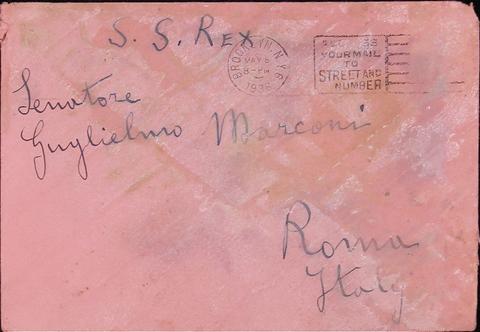 S. S. Rex
BROOKLYN, N.Y.
MAY 6
8-PM
1936
YOUR MAIL
TO
STREET AND
NUMBER
Senatore
Guglielmo Marconi
Roma
Italy